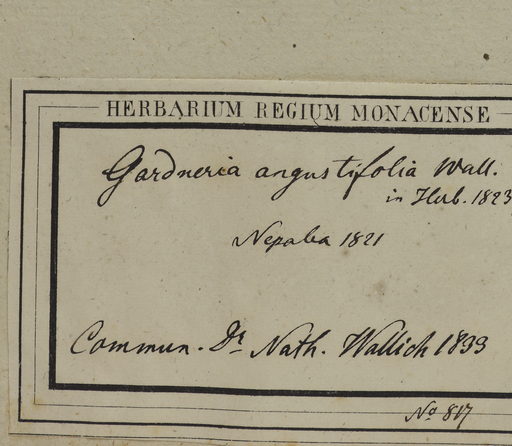 HERBARIUM REGIUM MONACENSE
Gardneria angustifolia Wall.
in Herb. 1823
Nepalia 1821
Commun. Dr Nath. Wallich 1833
No 817